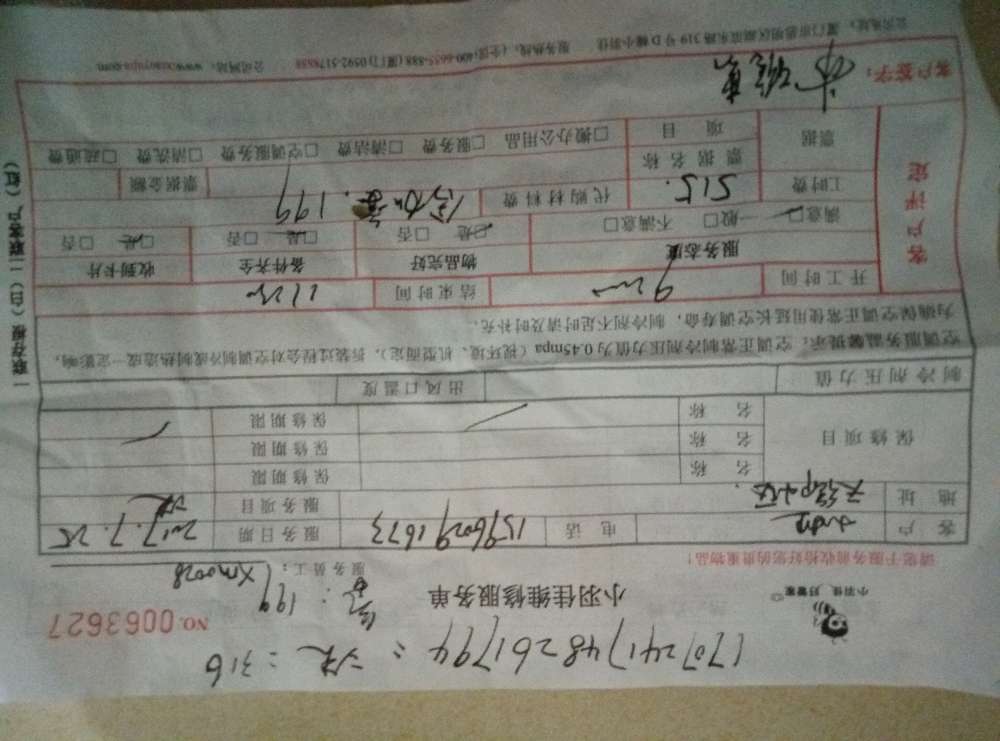 170724174826179 4 = 洗 : 316
小羽佳 好管家
小羽佳维修服务单
NO. 0063627
: 199
请您于服务前收拾好您的贵重物品!
服务员工: Xm0028
客户 电话 15960291673 服务日期 2017.7.25
地址 服务项目 洗
保修项目 名称 保修期限
名称 保修期限
名称 保修期限
制冷剂压力值 出风口温度
空调服务温馨提示:空调正常制冷剂压力值为0.45mpa(视环境、机型而定),拆装过程会对空调制冷或制热造成一定影响,
为确保空调正常使用延长空调寿命,制冷剂不足时请及时补充。
开工时间 9 结束时间 11
客户评定
服务态度 物品完好 备件齐全 收到卡片
满意□ 一般□ 不满意□ □是 □否 □是 □否 □是 □否
工时费 515. 代购材料费 199 票据金额
票据 票据名称
项目 □搬办公用品 □服务费 □清洁费 □空调服务费 □清洗费 □疏通费
客户签字:
公司地址:厦门市思明区 319号D幢小羽佳 服务热线:(全国)400-6655-888 (厦门)0592-5178888 公司网站:www.xiaoyujia.com
一联存根(白) 二联客户(红)